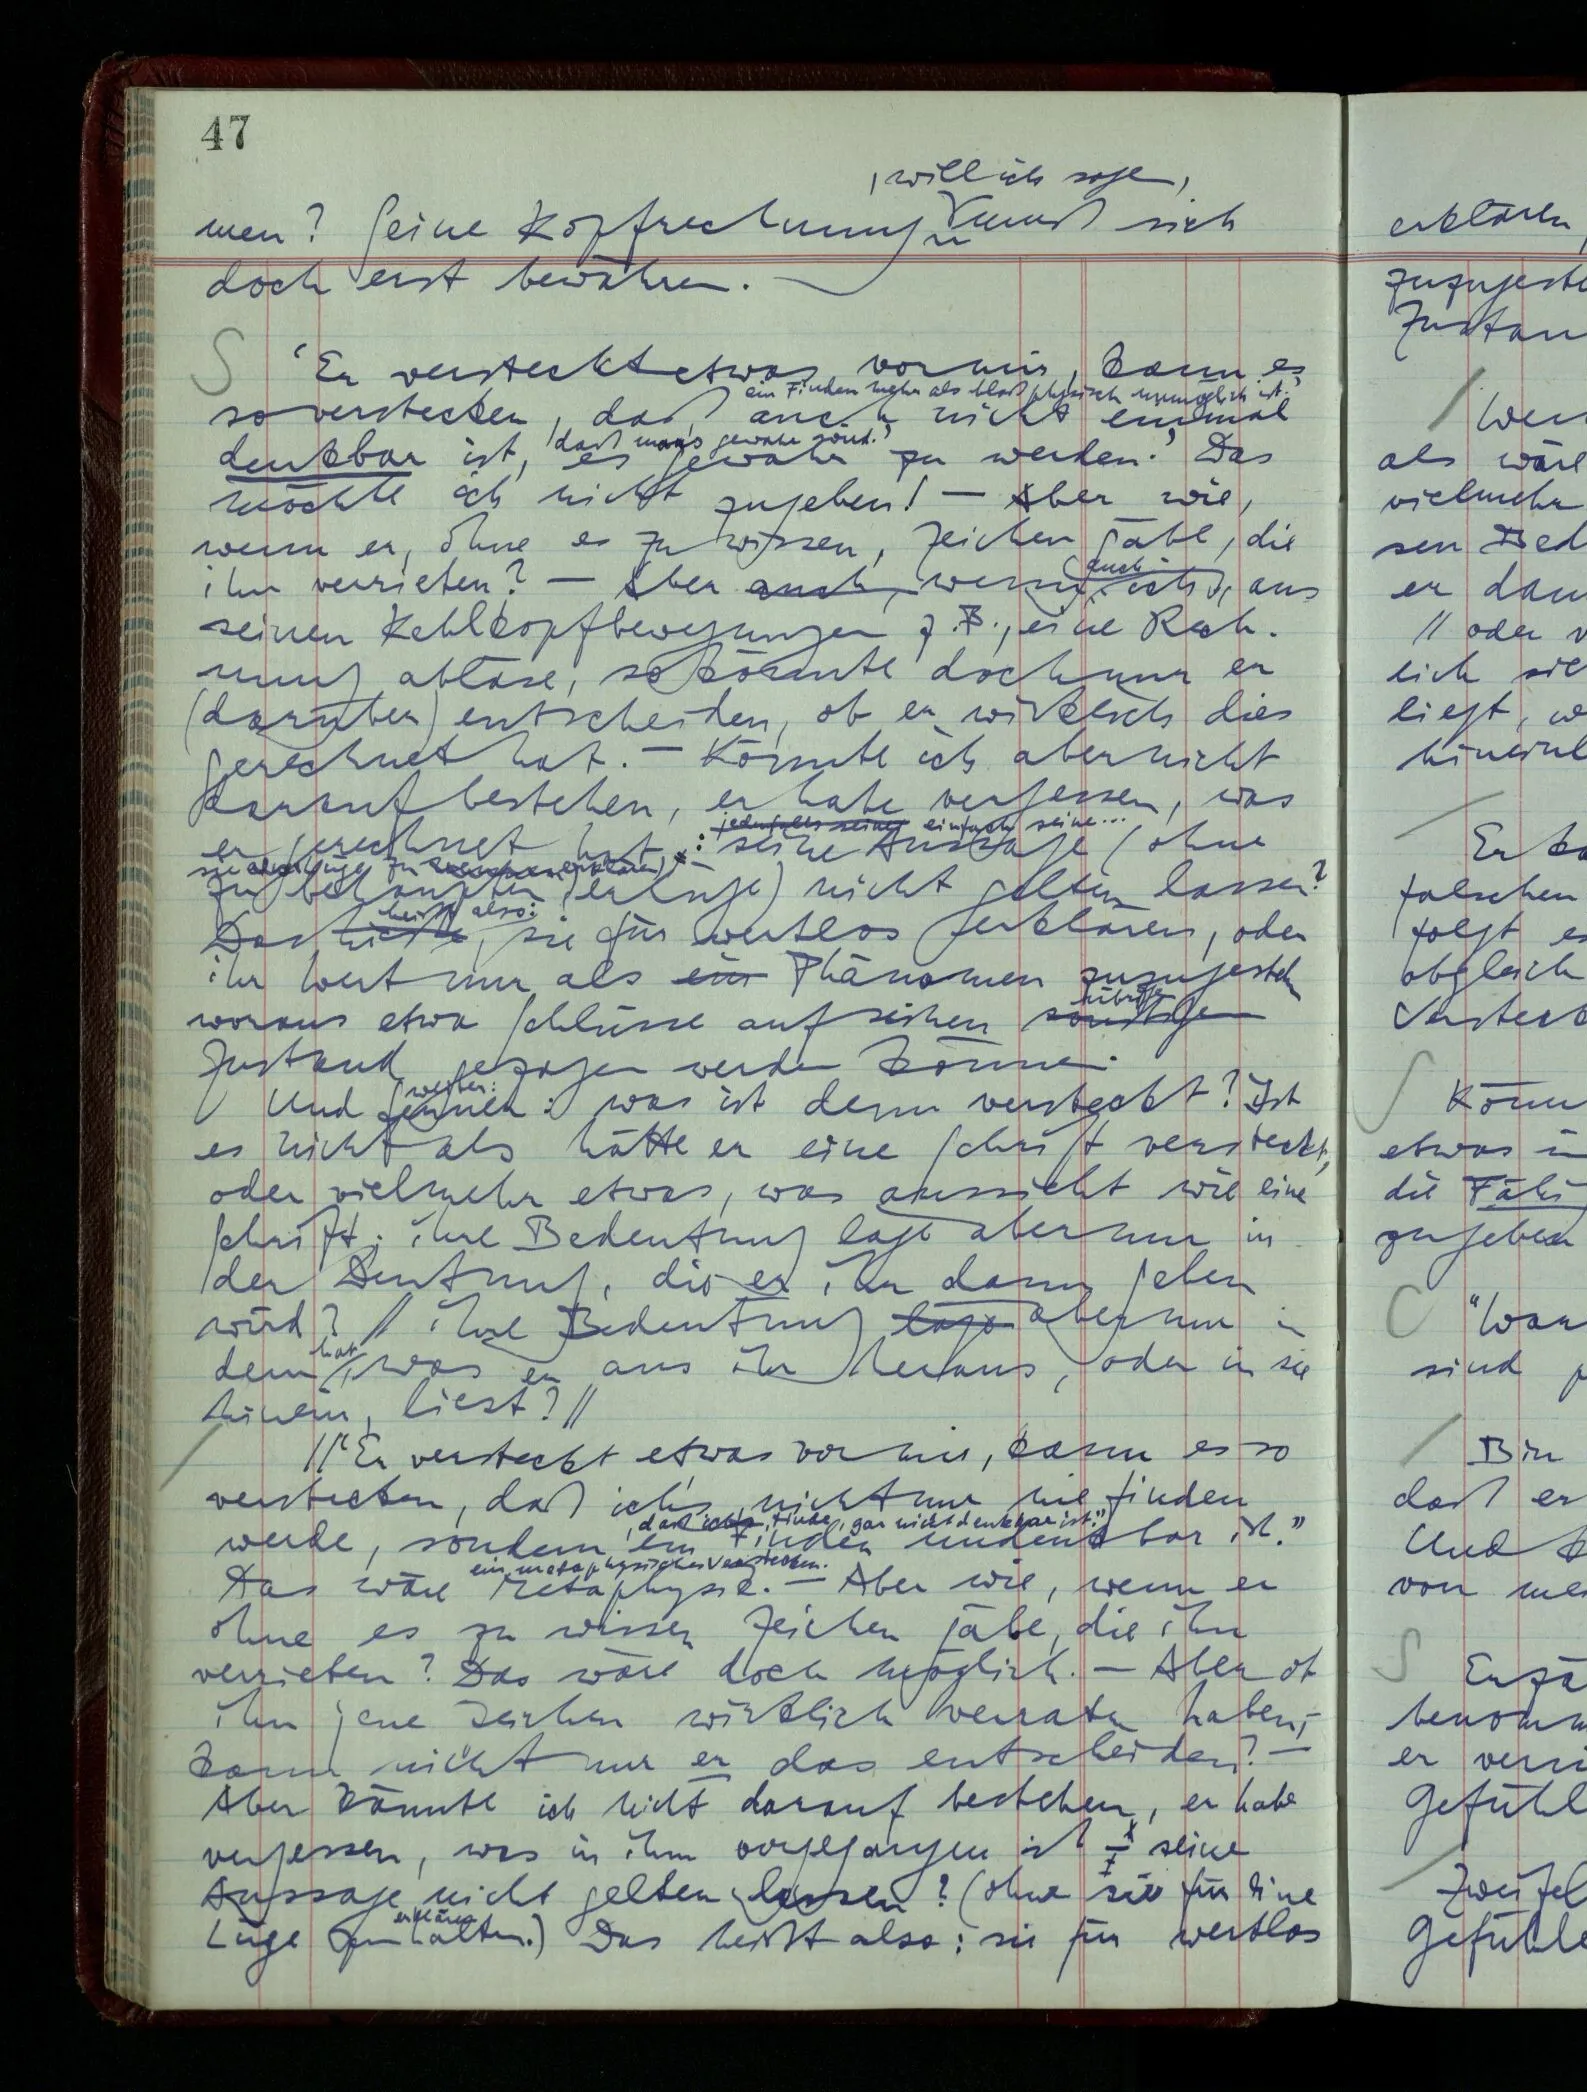 47
, will ich sagen,
men? Seine Kopfrechnung muß sich
doch erst bewähren. —
S 'Er versteckt etwas vor mir, kann es
ein Finden mehr als bloß physisch unmöglich ist.'
so verstecken, daß auch nicht einmal
daß man's gewahr wird.'
denkbar ist, es gewahr zu werden.' Das
möchte ich nicht zugeben! — Aber wie,
wenn er, ohne es zu wissen, Zeichen gäbe, die
auch
ihn verrieten? — Aber auch, wenn ich's, aus
seinen Kehlkopfbewegungen z.B., eine Rech-
nung abläse, so könnte doch nur er
(darüber) entscheiden, ob er wirklich dies
gerechnet hat. — Könnte ich aber nicht
darauf bestehen, er habe vergessen, was
jedenfalls seine einfach seine...
er gerechnet hat: seine Aussage (ohne
sie als Lüge zu erklären)
zu behaupten er lüge) nicht gelten lassen?
heißt also:
Das hieße, sie für wertlos erklären, oder
ihr Wert nur als ein Phänomen zuzugestehn
übrigen
woraus etwa Schlüsse auf seinen sonstigen
Zustand gezogen werden können.
weiter:
Und ferner: was ist denn versteckt? Ist
es nicht als hätte er eine Schrift versteckt,
oder vielmehr etwas, was aussieht wie eine
Schrift; ihre Bedeutung läge aber nur in
der Deutung, die er ihr dann geben
wird? // ihre Bedeutung läge aber nur in
hat
dem, was er aus ihr heraus, oder in sie
hinein, liest? //
/ //"Er versteckt etwas vor mir, kann es so
verstecken, daß ich's nicht nur nie finden
, daß ich's finde, gar nicht denkbar ist."
werde, sondern ein Finden undenkbar ist."
ein metaphysisches Verstecken.
Das wäre Metaphysik. — Aber wie, wenn er
ohne es zu wissen Zeichen gäbe, die ihn
verrieten? Das wäre doch möglich. — Aber ob
ihn jene Zeichen wirklich verraten haben, —
kann nicht nur er das entscheiden? —
Aber könnte ich nicht darauf bestehen, er habe
vergessen, was in ihm vorgegangen ist seine
Aussage nicht gelten lassen? (ohne sie für eine
erklären
Lüge zu halten.) Das heißt also: sie für wertlos
erklären,
zuzugeste
Zustan
/ Wen
als wäre
vielmehr
sen Bed
er dan
// oder v
lich sie
liest, w
hineinl
/ Er ka
falschen
folgt es
obgleich
Versteck
S Könn
etwas in
die Fähi
zugeben
C "Wor
sind p
/ Bin
daß er
Und k
von mei
S
benomm
er verri
Gefühl
/ Zweifel
Gefühle